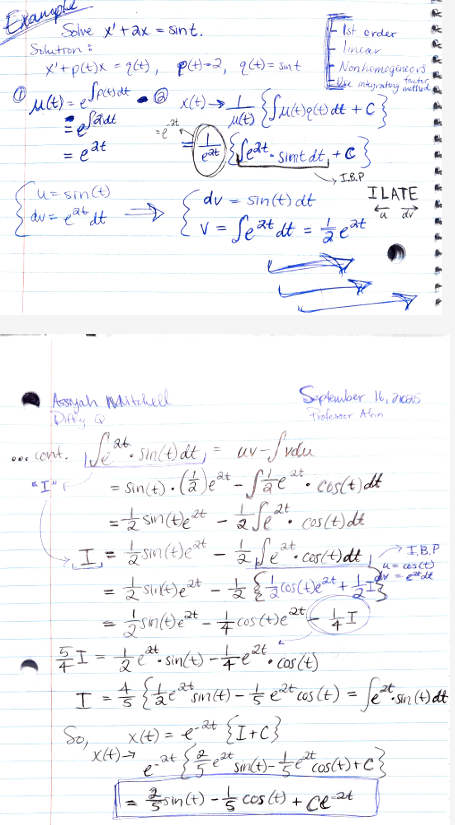 Example
Solve x' + 2x = sint.
Solution:
x' + p(t)x = q(t), p(t)=2, q(t) = sint
1st order
linear
Nonhomogeneous
Use integrating factor method
① μ(t) = e^∫p(t)dt
= e^∫2dt
= e^2t
② x(t) → 1/μ(t) {∫μ(t)q(t)dt + C}
= e^-2t
= 1/e^2t {∫e^2t · sint dt, + C}
→ I.B.P
{ u = sin(t)
dv = e^2t dt
⇒
{ dv = sin(t) dt
v = ∫e^2t dt = 1/2 e^2t
ILATE
u dv
Mitchell
Diffy Q
September 16, 2025
Professor Ahn
... cont. ∫e^2t · sin(t)dt, = uv - ∫vdu
"I"
= sin(t) · (1/2)e^2t - ∫1/2 e^2t · cos(t)dt
= 1/2 sin(t)e^2t - 1/2 ∫e^2t · cos(t)dt
I = 1/2 sin(t)e^2t - 1/2 ∫e^2t · cos(t)dt
→ I.B.P
u = cos(t)
dv = e^2t dt
= 1/2 sin(t)e^2t - 1/2 {1/2 cos(t)e^2t + 1/2 I}
= 1/2 sin(t)e^2t - 1/4 cos(t)e^2t - 1/4 I
5/4 I = 1/2 e^2t · sin(t) - 1/4 e^2t · cos(t)
I = 4/5 {1/2 e^2t sin(t) - 1/5 e^2t cos(t) = ∫e^2t · sin(t)dt
So, x(t) = e^-2t {I + C}
x(t) → e^-2t {2/5 e^2t sin(t) - 1/5 e^2t cos(t) + C}
= 2/5 sin(t) - 1/5 cos(t) + Ce^-2t